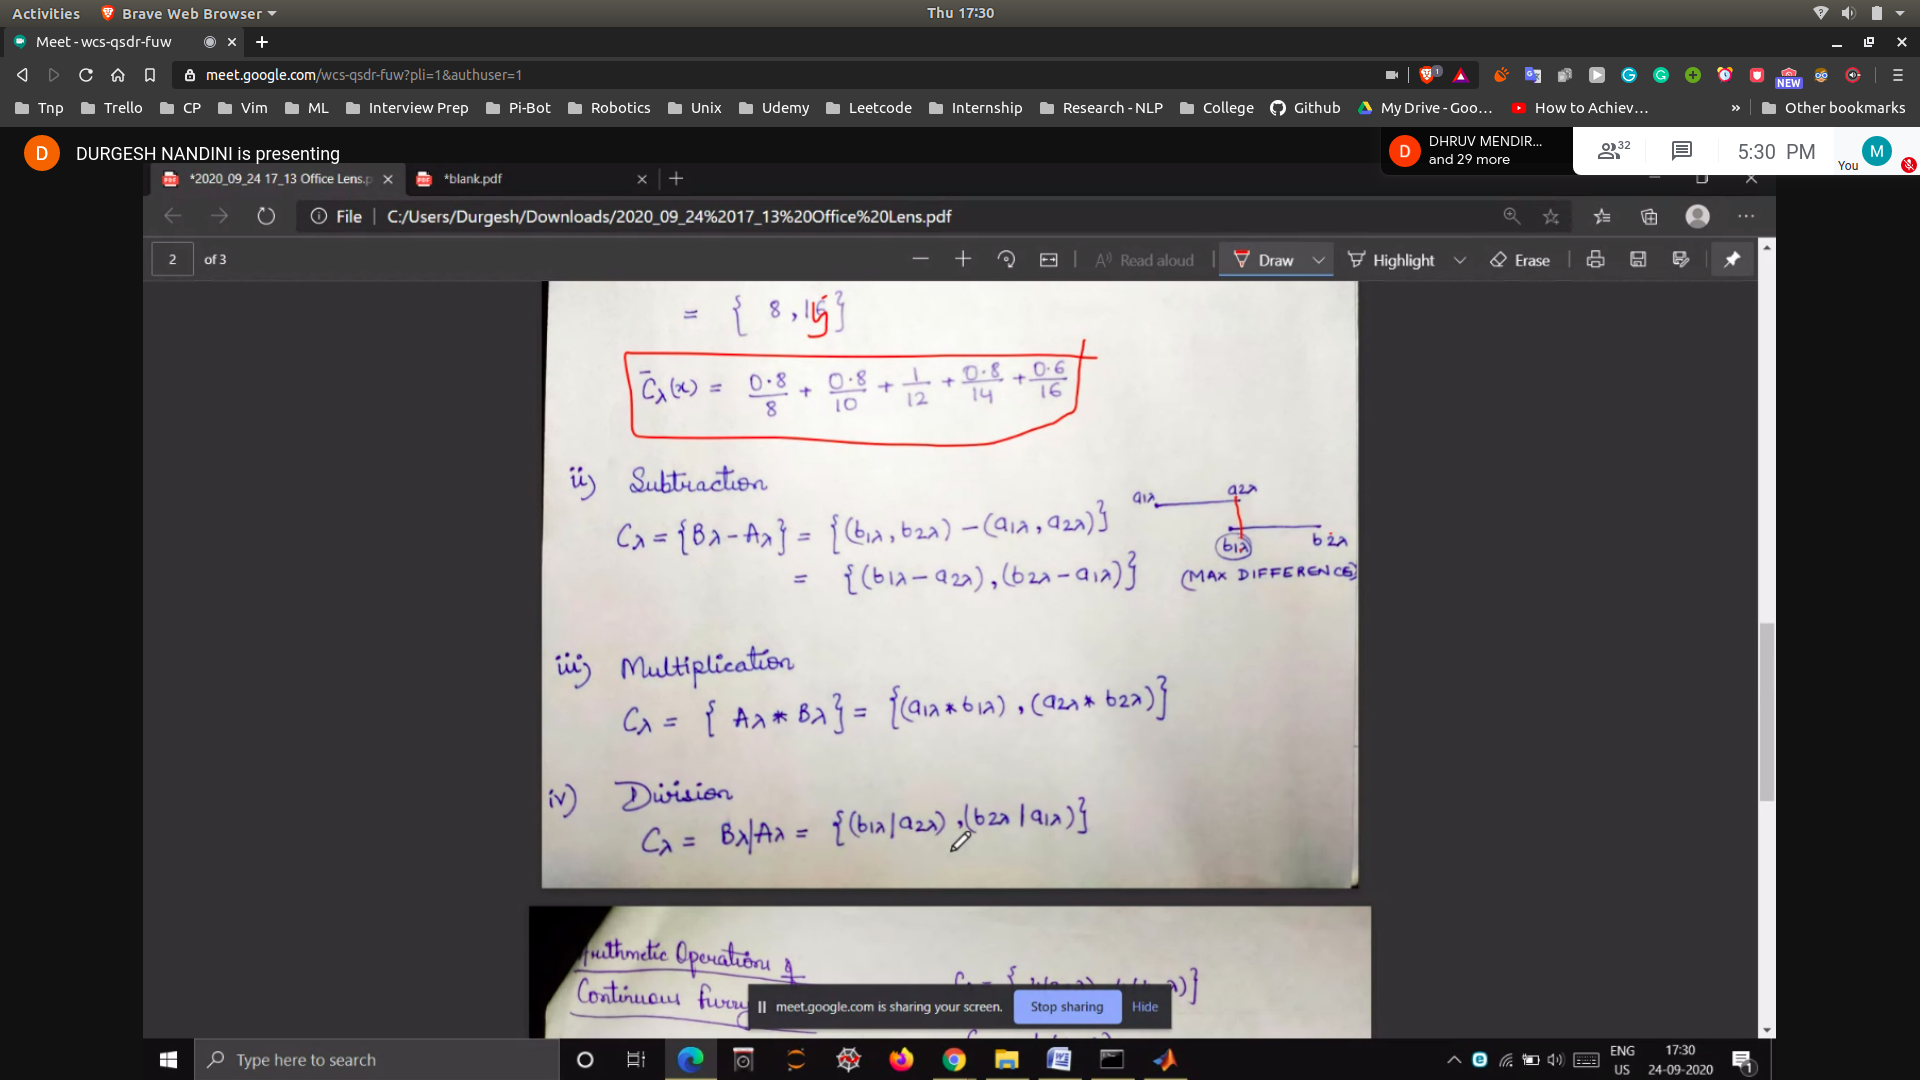 Activities Brave Web Browser Thu 17:30
Meet - wcs-qsdr-fuw
meet.google.com/wcs-qsdr-fuw?pli=1&authuser=1 1 NEW
Tnp Trello CP Vim ML Interview Prep Pi-Bot Robotics Unix Udemy Leetcode Internship Research - NLP College Github My Drive - Goo... How to Achiev... » Other bookmarks
D DURGESH NANDINI is presenting
D DHRUV MENDIR... and 29 more 32 5:30 PM You M
*2020_09_24 17_13 Office Lens.p *blank.pdf
File C:/Users/Durgesh/Downloads/2020_09_24%2017_13%20Office%20Lens.pdf
2 of 3 Read aloud Draw Highlight Erase
C̄λ(x) = 0.8/8 + 0.8/10 + 1/12 + 0.8/14 + 0.6/16
ii) Subtraction
a1λ a2λ
Cλ = {Bλ - Aλ} = {(b1λ, b2λ) - (a1λ, a2λ)}
b1λ b2λ
= {(b1λ - a2λ), (b2λ - a1λ)} (MAX DIFFERENCE)
iii) Multiplication
Cλ = { Aλ * Bλ } = {(a1λ * b1λ), (a2λ * b2λ)}
iv) Division
Cλ = Bλ|Aλ = {(b1λ | a2λ), (b2λ | a1λ)}
Arithmetic Operations of
Continuous Fuzzy
meet.google.com is sharing your screen. Stop sharing Hide
Type here to search
ENG US 17:30 24-09-2020 1